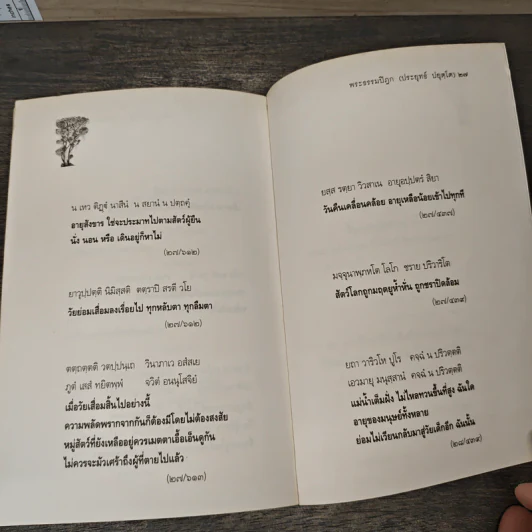 น เหว ติฏฺฐํ นาสีนํ น สยานํ น ปตฺถคุํ
อายุสังขาร ใช่จะประมาทไปตามสัตว์ผู้ยืน
นั่ง นอน หรือ เดินอยู่ก็หาไม่
(๒๗/๖๑๒)
ยาวุปฺปตฺติ นิมิสฺสติ ตตฺราปิ สรตี วโย
วัยย่อมเสื่อมลงเรื่อยไป ทุกหลับตา ทุกลืมตา
(๒๗/๖๑๒)
ตตฺถตฺตติ วตปฺปนฺเถ วินาภาเว อสํสเย
ภูตํ เสสํ ทยิตพฺพํ จวิตํ อนนุโสจิยํ
เมื่อวัยเสื่อมสิ้นไปอย่างนี้
ความพลัดพรากจากกันก็ต้องมีโดยไม่ต้องสงสัย
หมู่สัตว์ที่ยังเหลืออยู่ควรเมตตาเอื้อเอ็นดูกัน
ไม่ควรจะมัวเศร้าถึงผู้ที่ตายไปแล้ว
(๒๗/๖๑๓)
พระธรรมปิฎก (ประยุทธ์ ปยุตฺโต) ๒๗
ยสฺส รตฺยา วิวสาเน อายุอปฺปตรํ สิยา
วันคืนเคลื่อนคล้อย อายุเหลือน้อยเข้าไปทุกที
(๒๗/๔๓๗)
มจฺจุนาพฺภหโต โลโก ชราย ปริวาริโต
สัตว์โลกถูกมฤตยูห้ำหั่น ถูกชราปิดล้อม
(๒๗/๔๓๙)
ยถา วาริวโห ปูโร คจฺฉํ น ปริวตฺตติ
เอวมายุ มนุสฺสานํ คจฺฉํ น ปริวตฺตติ
แม่น้ำเต็มฝั่ง ไม่ไหลทวนขึ้นที่สูง ฉันใด
อายุของมนุษย์ทั้งหลาย
ย่อมไม่เวียนกลับมาสู่วัยเด็กอีก ฉันนั้น
(๒๘/๔๓๙)